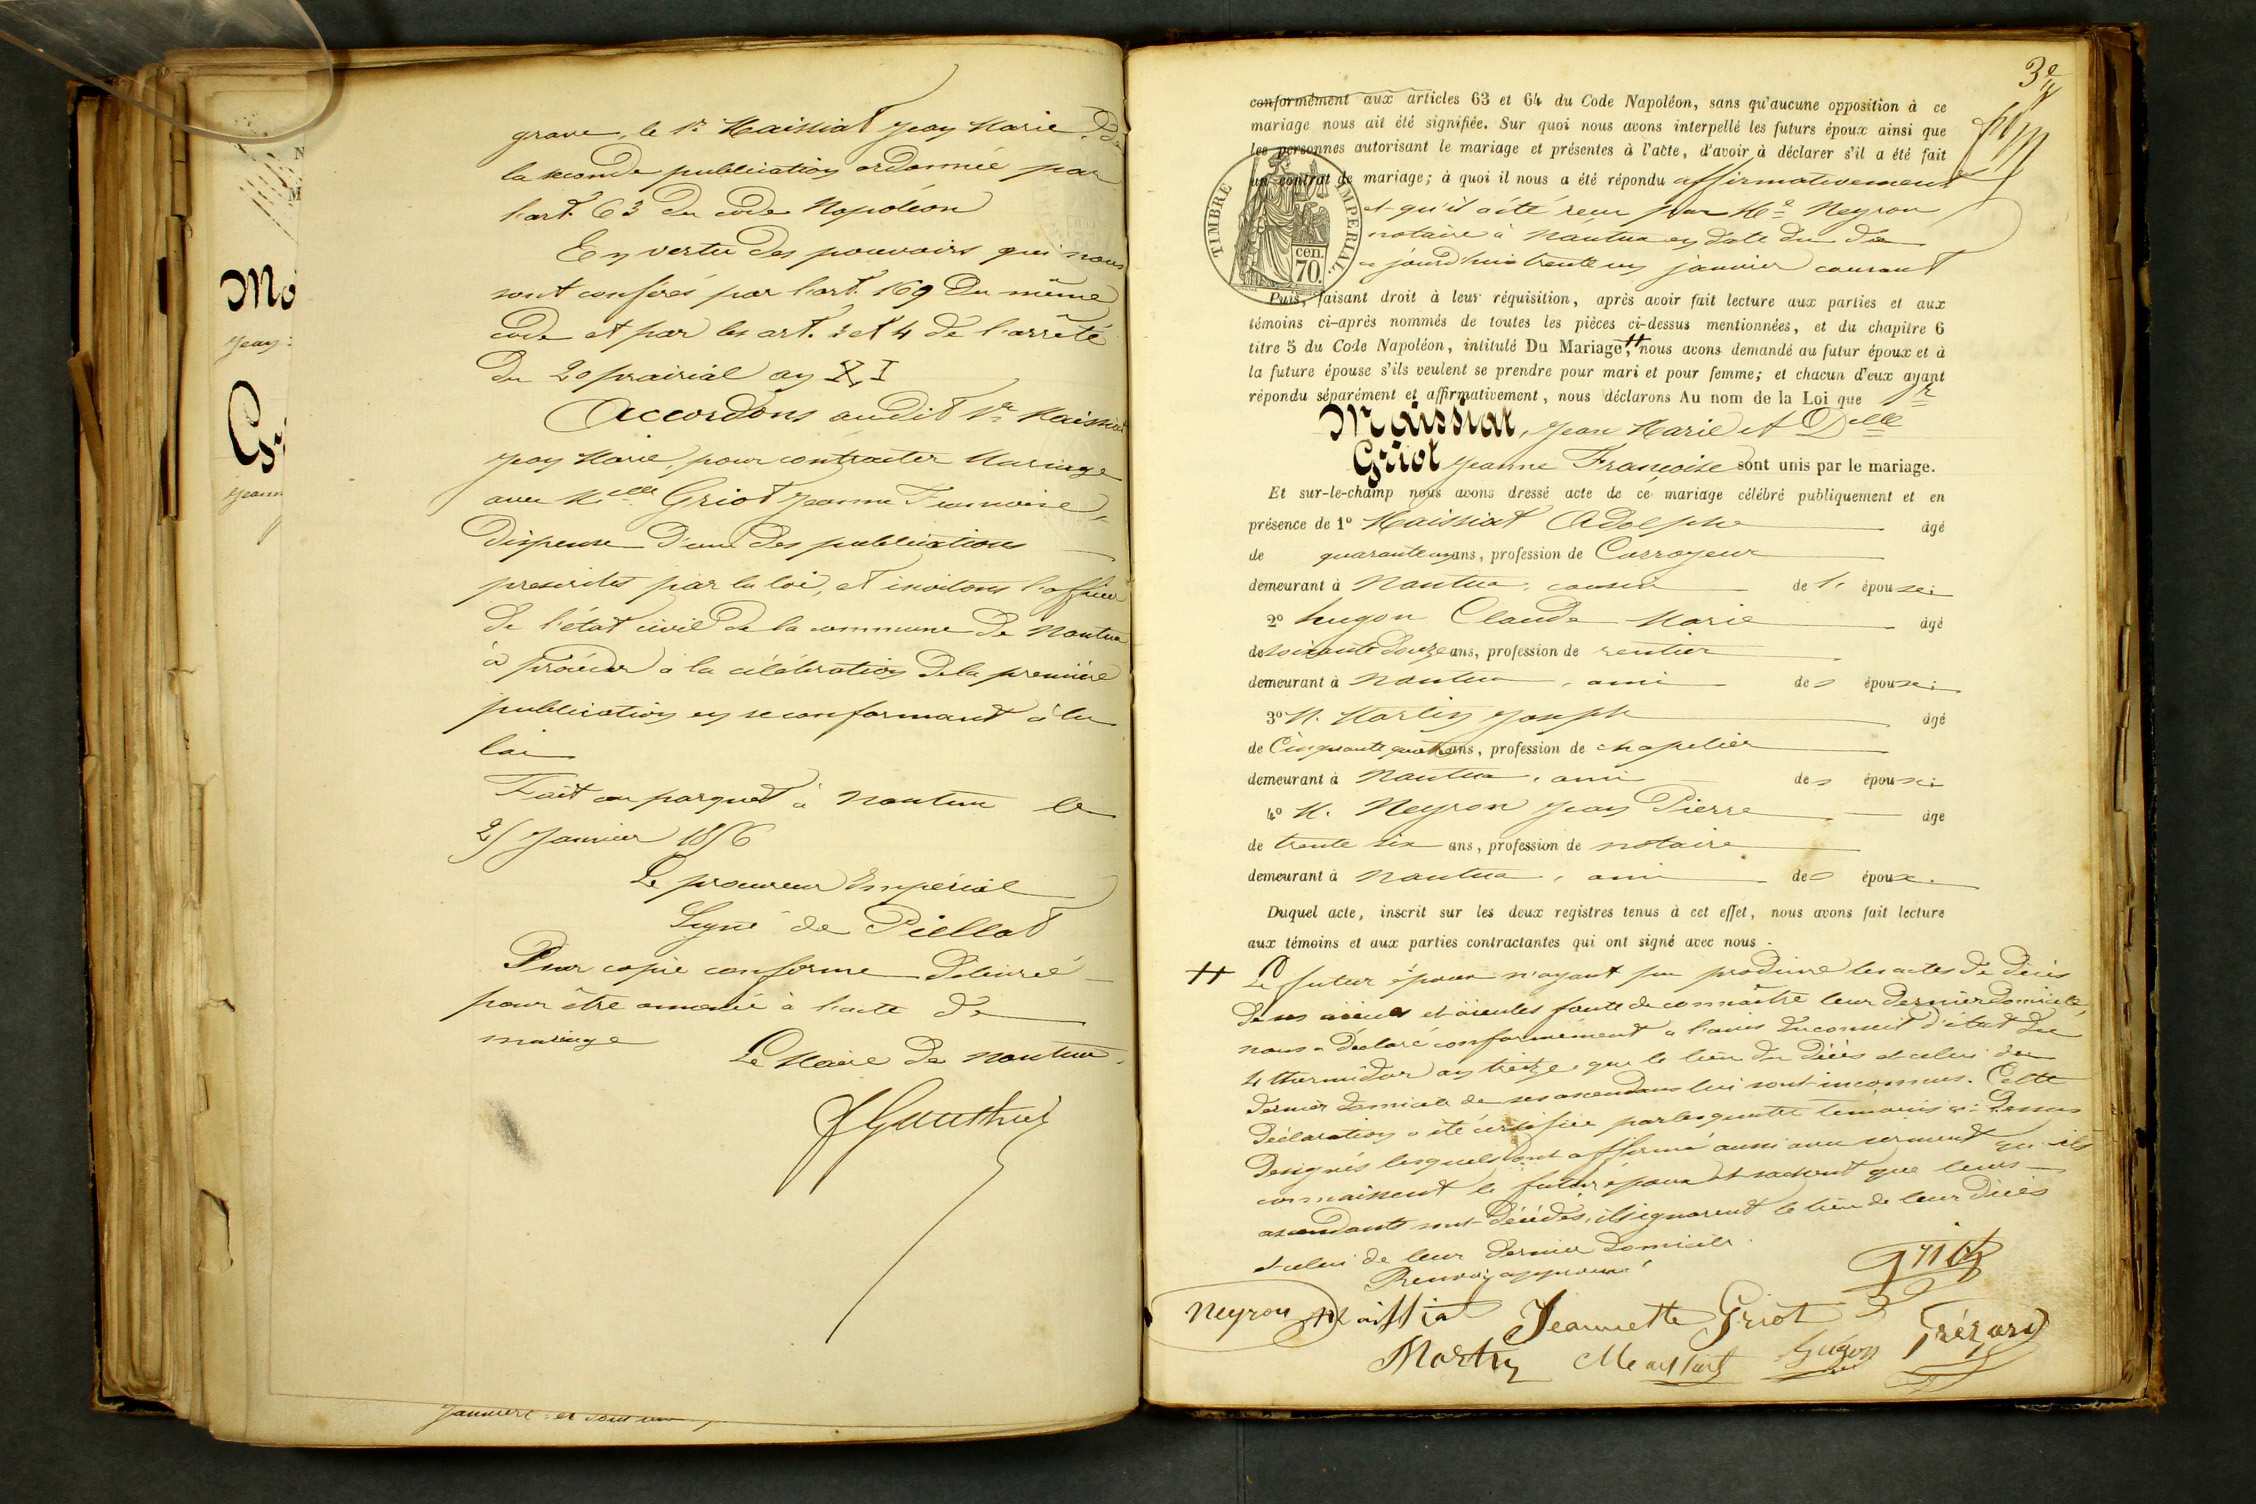 grave, le Sr. Maissiat Jean Marie, de
la seconde publication ordonnée par
l'art. 63 du code Napoléon
En vertu des pouvoirs qui nous
sont conférés par l'art. 169 du même
code et par les art. 3 et 4 de l'arrêté
du 20 prairial an XI
Accordons audit Sr. Maissiat
Jean Marie, pour contracter Mariage
avec Melle Griot Jeanne Francoise,
dispense d'une des publications
prescrites par la loi, et invitons l'officier
de l'état civil de la commune de Nantua
à procéder à la célébration de la première
publication en se conformant à la
loi
Fait au parquet à Nantua le
25 Janvier 1856
Le procureur Impérial
Signé de Piellat
Pour copie conforme délivrée
pour être annexée à l'acte de
mariage
Le Maire de Nantua.
Janvier
Mo
Jean
G
Jeann
3e
conformément aux articles 63 et 64 du Code Napoléon, sans qu'aucune opposition à ce
mariage nous ait été signifiée. Sur quoi nous avons interpellé les futurs époux ainsi que
les personnes autorisant le mariage et présentes à l'acte, d'avoir à déclarer s'il a été fait
un contrat de mariage; à quoi il nous a été répondu affirmativement
et qu'il a été reçu par Me Neyron
notaire à Nantua en date du
jourd'hui trente un janvier courant
TIMBRE IMPERIAL.
cen. 70.
Puis, faisant droit à leur réquisition, après avoir fait lecture aux parties et aux
témoins ci-après nommés de toutes les pièces ci-dessus mentionnées, et du chapitre 6
titre 5 du Code Napoléon, intitulé Du Mariage, # nous avons demandé au futur époux et à
la future épouse s'ils veulent se prendre pour mari et pour femme; et chacun d'eux ayant
répondu séparément et affirmativement, nous déclarons Au nom de la Loi que Sr
Maissiat, Jean Marie et Delle
Griot Jeanne Françoise sont unis par le mariage.
Et sur-le-champ nous avons dressé acte de ce mariage célébré publiquement et en
présence de 1° Maissiat Adolphe âgé
de quarante un ans, profession de Corroyeur
demeurant à Nantua, cousin de l' épouse;
2° hugon Claude Marie âgé
de soixante douze ans, profession de rentier
demeurant à Nantua, ami des époux;
3° M. Martin Joseph âgé
de Cinquante quatre ans, profession de chapelier
demeurant à Nantua, ami des époux;
4° M. Neyron Jean Pierre âgé
de trente six ans, profession de notaire
demeurant à Nantua, ami des époux.
Duquel acte, inscrit sur les deux registres tenus à cet effet, nous avons fait lecture
aux témoins et aux parties contractantes qui ont signé avec nous.
# Le futur époux n'ayant pu produire les actes de décès
de ses aïeux et aïeules faute de connaître leur dernier domicile,
nous a déclaré conformément à l'avis du conseil d'état du
4 thermidor an treize, que le lieu du décès et celui du
dernier domicile de ses ascendans lui sont inconnus. Cette
déclaration a été certifiée par les quatre témoins ci-dessus
désignés lesquels ont affirmé aussi avec serment qu'ils
connaissent le futur époux et sachent que leurs
ascendants sont décédés, ils ignorent le lieu de leur décès
et celui de leur dernier domicile.
Renvoi approuvé
griot
Neyron Maissiat Jeannette Griot
Martin Maissiat hugon